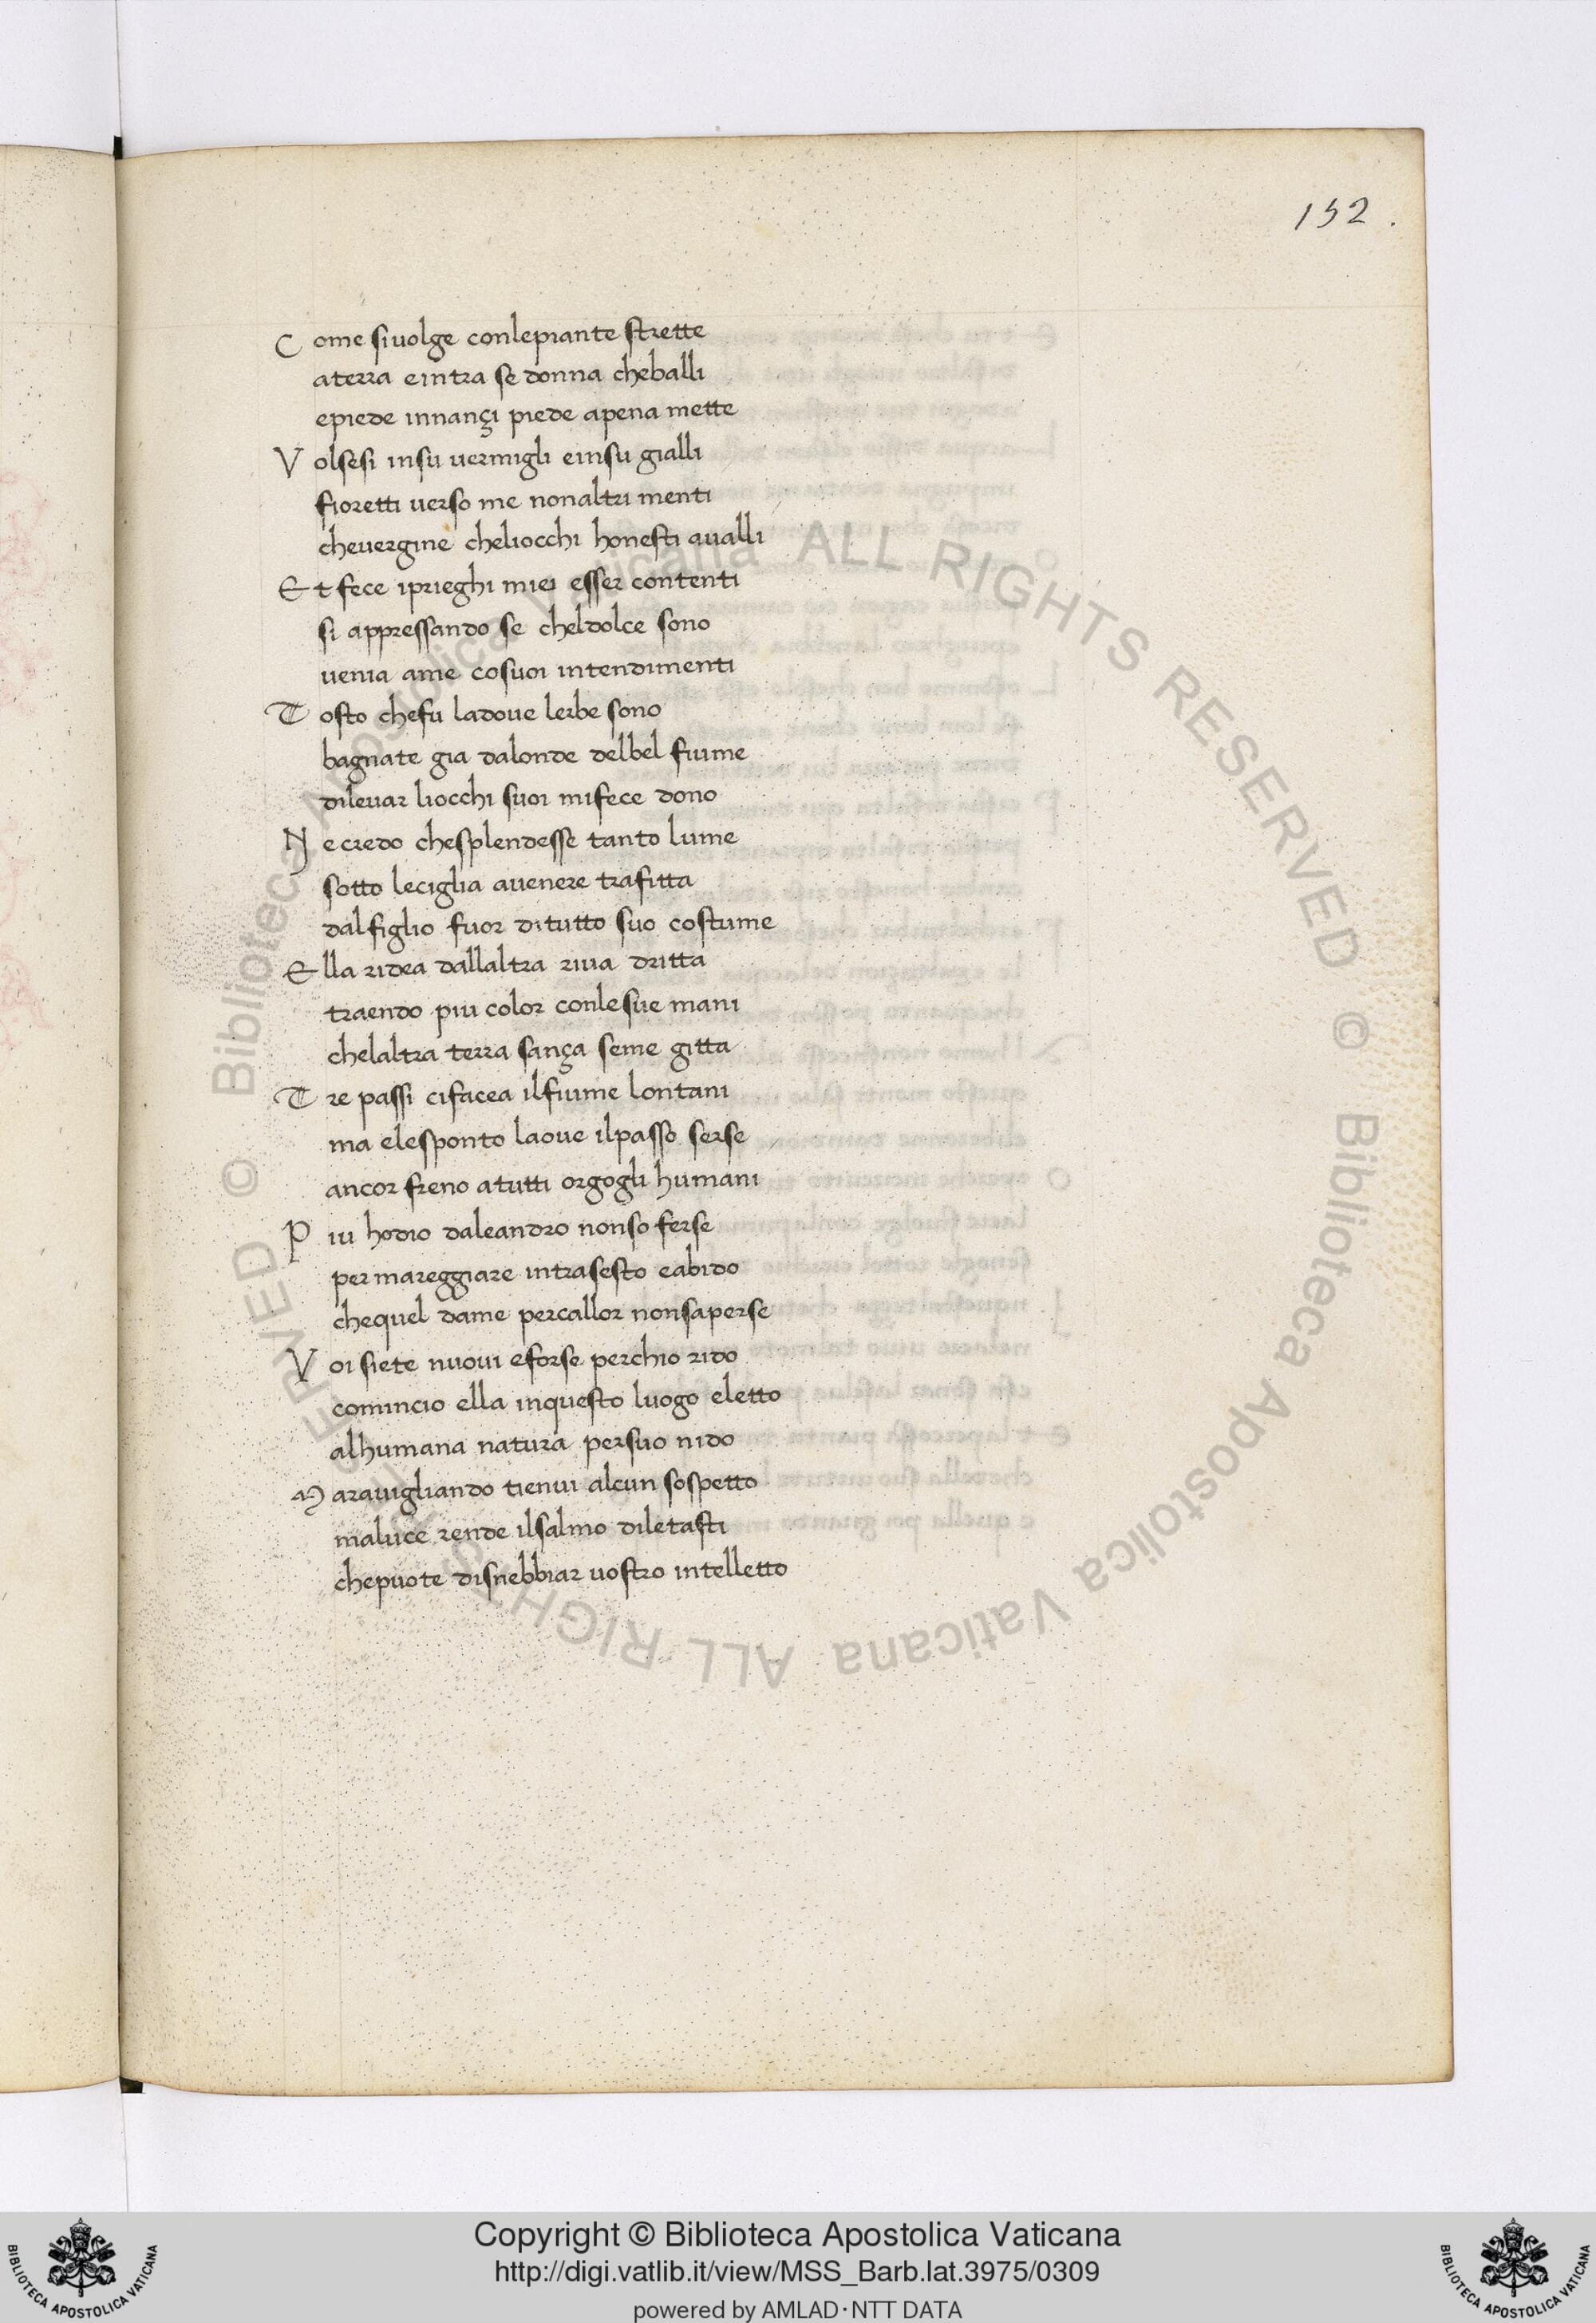 152.
Come sivolge conlepiante strette
aterra eintra se donna cheballi
epiede innançi piede apena mette
Volsesi insu vermigli einsu gialli
fioretti verso me nonaltri menti
chevergine cheliocchi honesti avalli
Et fece iprieghi miei esser contenti
si appressando se cheldolce sono
venia ame cosuoi intendimenti
Tosto chefu ladove lerbe sono
bagnate gia dalonde delbel fiume
dilevar liocchi suoi mifece dono
Necredo chesplendesse tanto lume
sotto leciglia avenere trafitta
dalfiglio fuor ditutto suo costume
Ella ridea dallaltra riva dritta
traendo piu color conlesue mani
chelaltra terra sança seme gitta
Tre passi cifacea ilfiume lontani
ma elesponto laove ilpasso serse
ancor freno atutti orgogli humani
Piu hodio daleandro nonsoferse
per mareggiare intrasesto eabido
chequel dame percallor nonsaperse
Voi siete nuovi eforse perchio rido
comincio ella inquesto luogo eletto
alhumana natura persuo nido
Maravigliando tienvi alcun sospetto
maluce rende ilsalmo diletasti
chepuote disnebbiar vostro intelletto
© Biblioteca Apostolica Vaticana ALL RIGHTS RESERVED © Biblioteca Apostolica Vaticana ALL RIGHTS RESERVED
BIBLIOTECA APOSTOLICA VATICANA
Copyright © Biblioteca Apostolica Vaticana
http://digi.vatlib.it/view/MSS_Barb.lat.3975/0309
powered by AMLAD·NTT DATA
BIBLIOTECA APOSTOLICA VATICANA